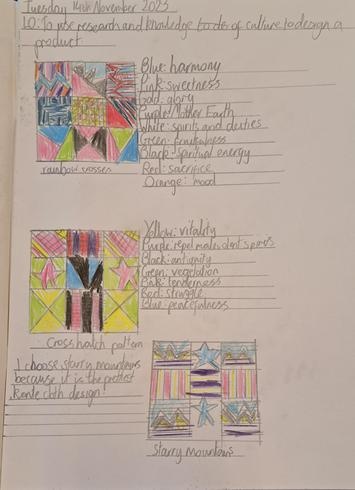 Tuesday 14th November 2023
LO: To use research and knowledge of culture to design a
product
Blue: harmony
Pink: sweetness
Gold: glory
Purple: Mother Earth
White: spirits and deities
Green: fruitfulness
Black: spiritual energy
Red: sacrifice
Orange: mood
rainbow crosses
Yellow: vitality
Purple: repel malevolent spirits
Black: antiquity
Green: vegetation
Pink: tenderness
Red: struggle
Blue: peacefulness
Cross hatch pattern
I choose starry mountains
because it is the prettiest
Kente cloth design!
Starry mountains